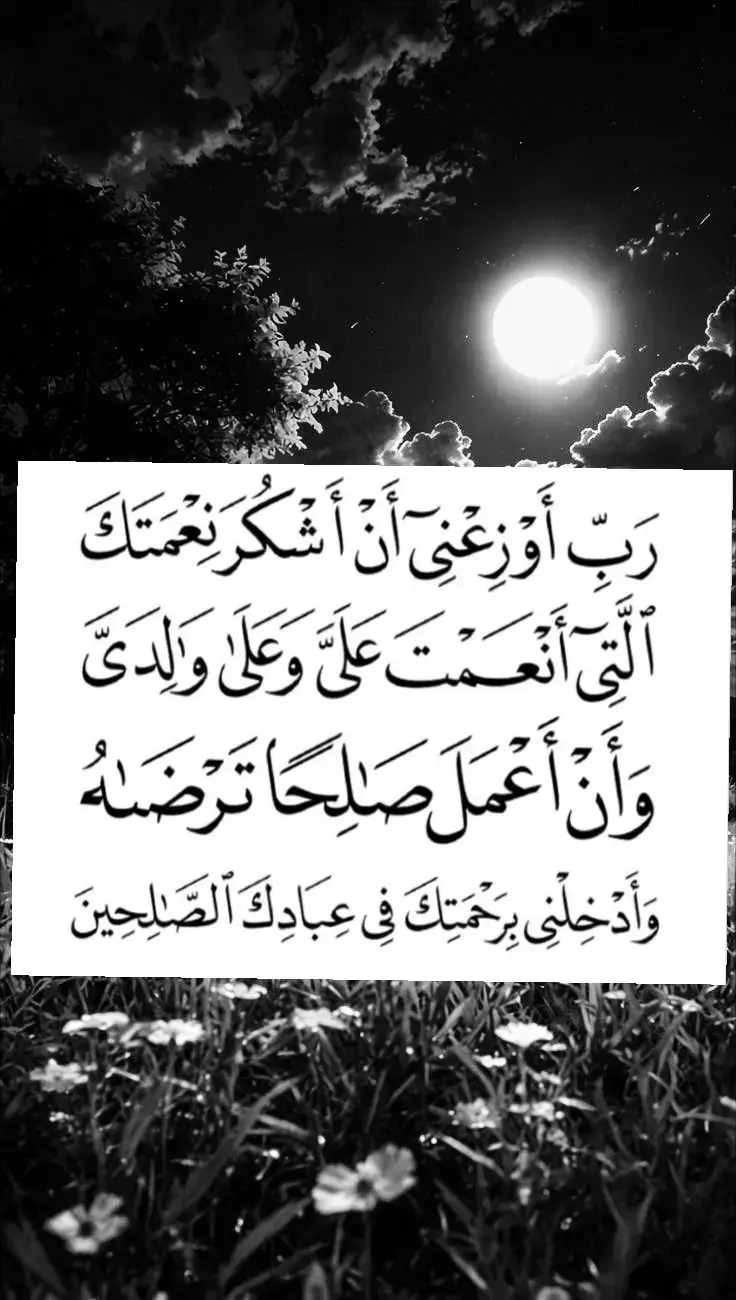 رَبِّ أَوْزِعْنِىٓ أَنْ أَشْكُرَ نِعْمَتَكَ
ٱلَّتِىٓ أَنْعَمْتَ عَلَىَّ وَعَلَىٰ وَٰلِدَىَّ
وَأَنْ أَعْمَلَ صَـٰلِحًا تَرْضَىٰهُ
وَأَدْخِلْنِى بِرَحْمَتِكَ فِى عِبَادِكَ ٱلصَّـٰلِحِينَ